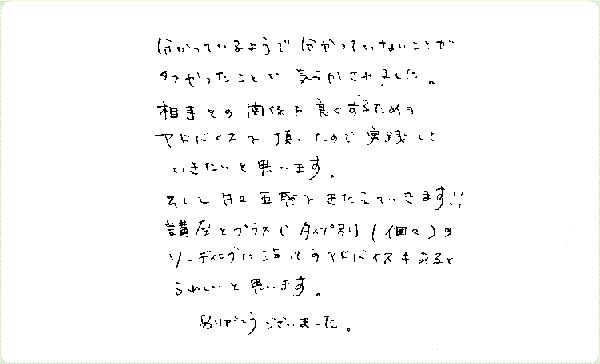 分かっているようで分かっていないことが
多かったことに気づかされました。
相手との関係を良くするための
アドバイスを頂いたので実践して
いきたいと思います。
そして自己 をきたえていきます!!
講座とプラスしタイプ別(個々)の
リーディングに アドバイスもあると
うれしいと思います。
ありがとうございました。